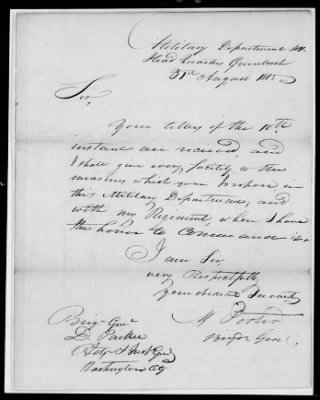 Military Department No.
Head Quarters Greenbush
31st August 1815
Sir,
Your letters of the 10th
instant are received, and
I shall give every facility to the
measures which you propose in
this Military Department, and
with my Regiment, when I have
the honor to Command it
I am Sir
very Respectfully
Your obedient Servant
M Porter
Brig Genl
Brig. Genl
D. Parker
Adjt & Inst Genl
Washington City